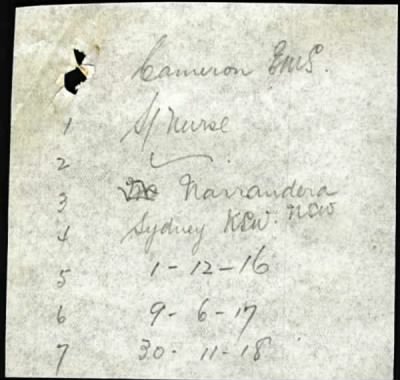 Cameron EMS.
1 S/Nurse
2
3 Narrandera
4 Sydney NSW. NSW
5 1-12-16
6 9-6-17
7 30-11-18